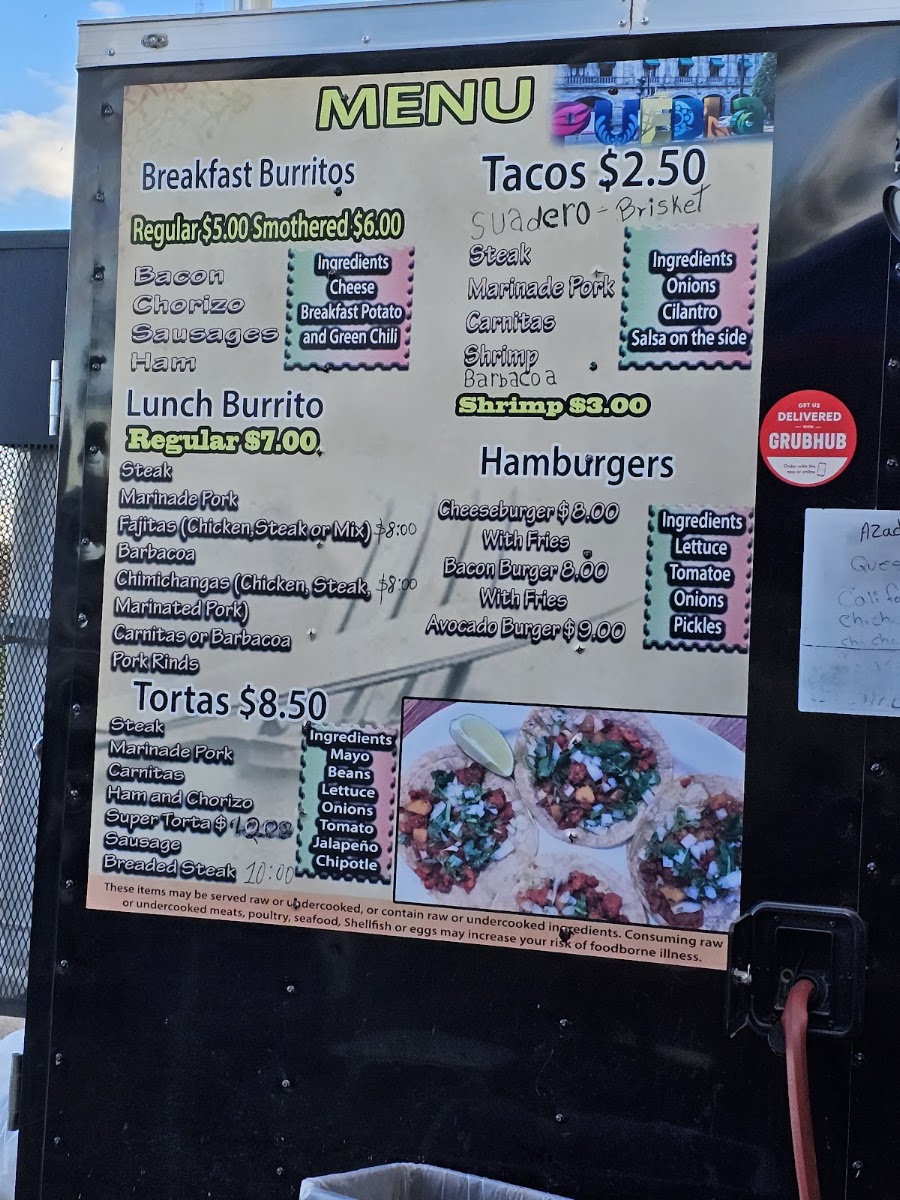 MENU
PUEBLA
Breakfast Burritos
Regular $5.00 Smothered $6.00
Bacon
Chorizo
Sausages
Ham
Ingredients
Cheese
Breakfast Potato
and Green Chili
Lunch Burrito
Regular $7.00
Steak
Marinade Pork
Fajitas (Chicken,Steak or Mix) $8:00
Barbacoa
Chimichangas (Chicken, Steak, $8:00
Marinated Pork)
Carnitas or Barbacoa
Pork Rinds
Tortas $8.50
Steak
Marinade Pork
Carnitas
Ham and Chorizo
Super Torta $10.00
Sausage
Breaded Steak 10:00
Ingredients
Mayo
Beans
Lettuce
Onions
Tomato
Jalapeño
Chipotle
Tacos $2.50
Suadero - Brisket
Steak
Marinade Pork
Carnitas
Shrimp
Barbacoa
Shrimp $3.00
Ingredients
Onions
Cilantro
Salsa on the side
Hamburgers
Cheeseburger $8.00
With Fries
Bacon Burger 8.00
With Fries
Avocado Burger $9.00
Ingredients
Lettuce
Tomatoe
Onions
Pickles
These items may be served raw or undercooked, or contain raw or undercooked ingredients. Consuming raw
or undercooked meats, poultry, seafood, Shellfish or eggs may increase your risk of foodborne illness.
GET US
DELIVERED
WITH
GRUBHUB
Order with the
app or online
Azad
Ques
Califo
chich
chich